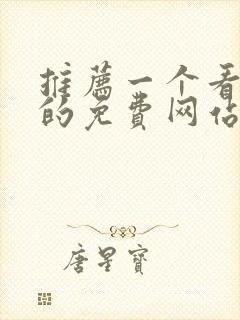 推薦一个看
的免費网站
唐星寶